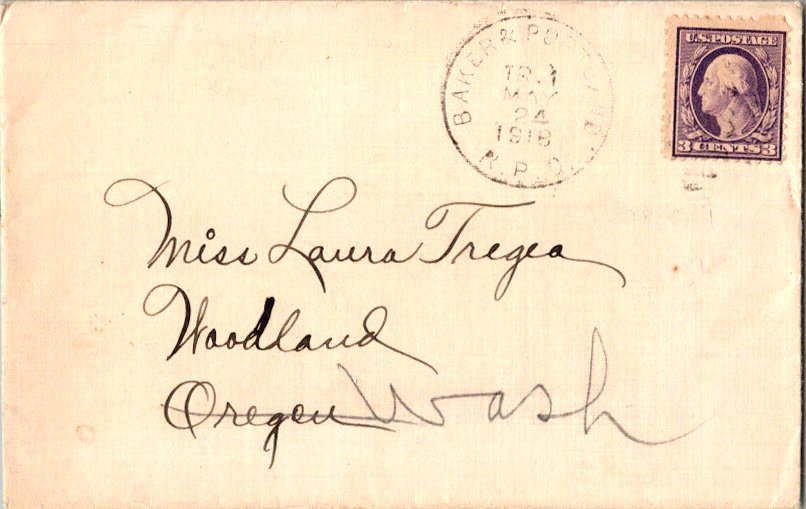 BAKER & PORTLAND
TR. 1
MAY
24
1918
R.P.O.
U.S.POSTAGE
3 CENTS 3
Miss Laura Tregea
Woodland
Oregon Wash